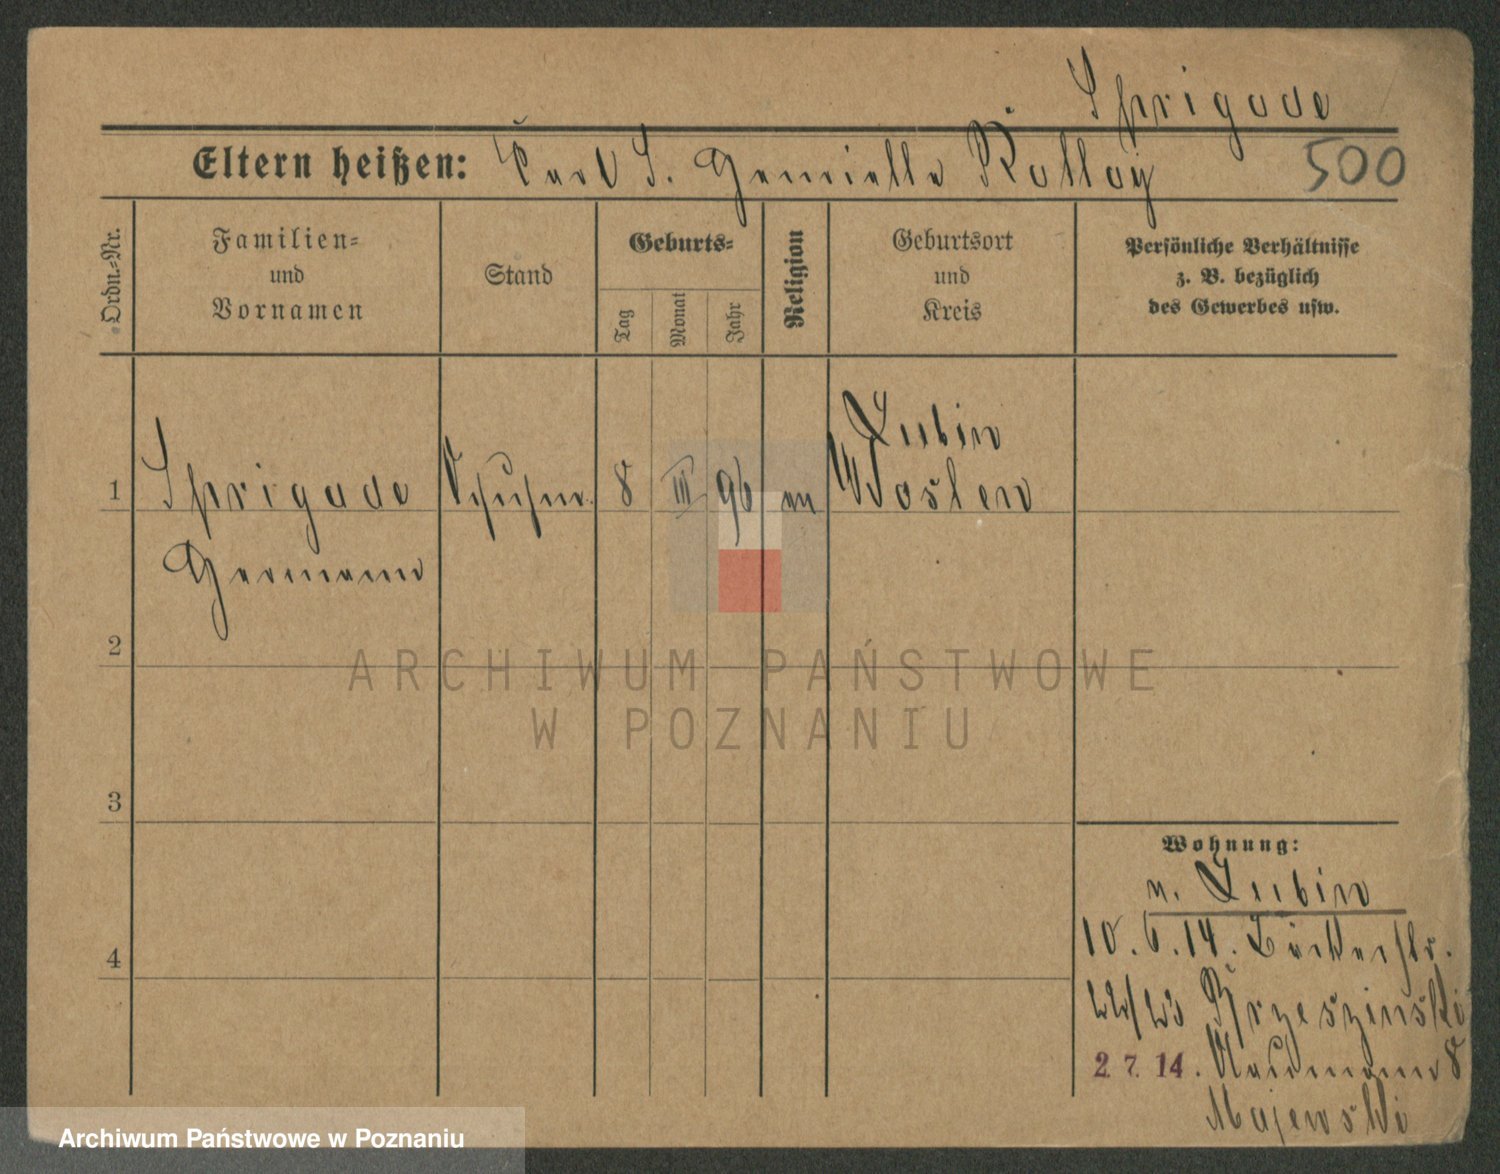 Sprigade
Eltern heißen: Carl S. Henriette
500
Ordn.-Nr.
Familien-
und
Vornamen
Stand
Geburts-
Tag
Monat
Jahr
Religion
Geburtsort
und
Kreis
Persönliche Verhältnisse
z. B. bezüglich
des Gewerbes usw.
1
Sprigade
Hermann
8
III
96
ev
Lubin
Kosten
2
3
4
Wohnung:
n. Lubin
10.6.14. Bäckerstr.
Brzeszinski
2.7.14. Naumann 8
Majewski
ARCHIWUM PAŃSTWOWE
W POZNANIU
Archiwum Państwowe w Poznaniu